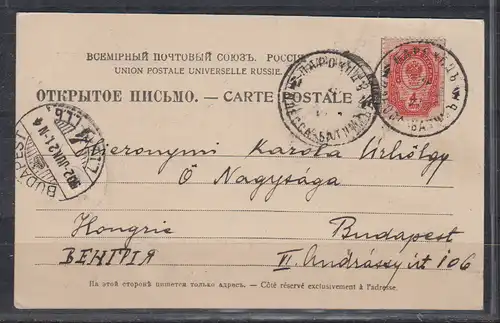 ВСЕМІРНЫЙ ПОЧТОВЫЙ СОЮЗЪ. РОССІЯ
UNION POSTALE UNIVERSELLE RUSSIE.
ОТКРЫТОЕ ПИСЬМО. — CARTE POSTALE
ПАРОХОДЪ
ОДЕССА-БАТУМЪ
4
BUDAPEST
902 JUN. 21. N 4
Hieronymi Karola Úrhölgy
Ő Nagysága
Hongrie Budapest
ВЕНГРІЯ VI. Andrássy út 106
На этой сторонѣ пишется только адресъ. — Côté réservé exclusivement à l'adresse.